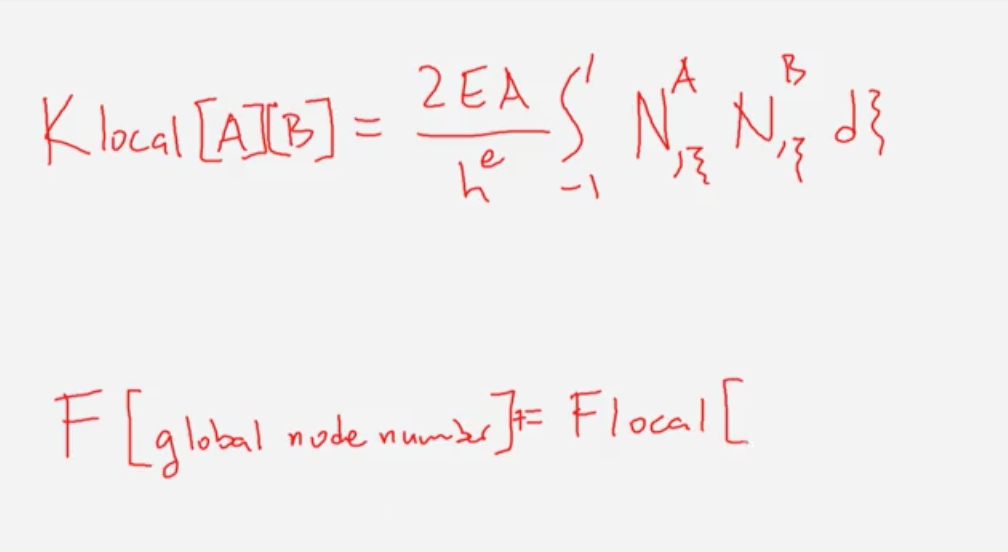 Klocal[A][B] = \frac{2EA}{h^e} \int_{-1}^{1} N^A_{,ξ} N^B_{,ξ} dξ
F[global node number] += Flocal[